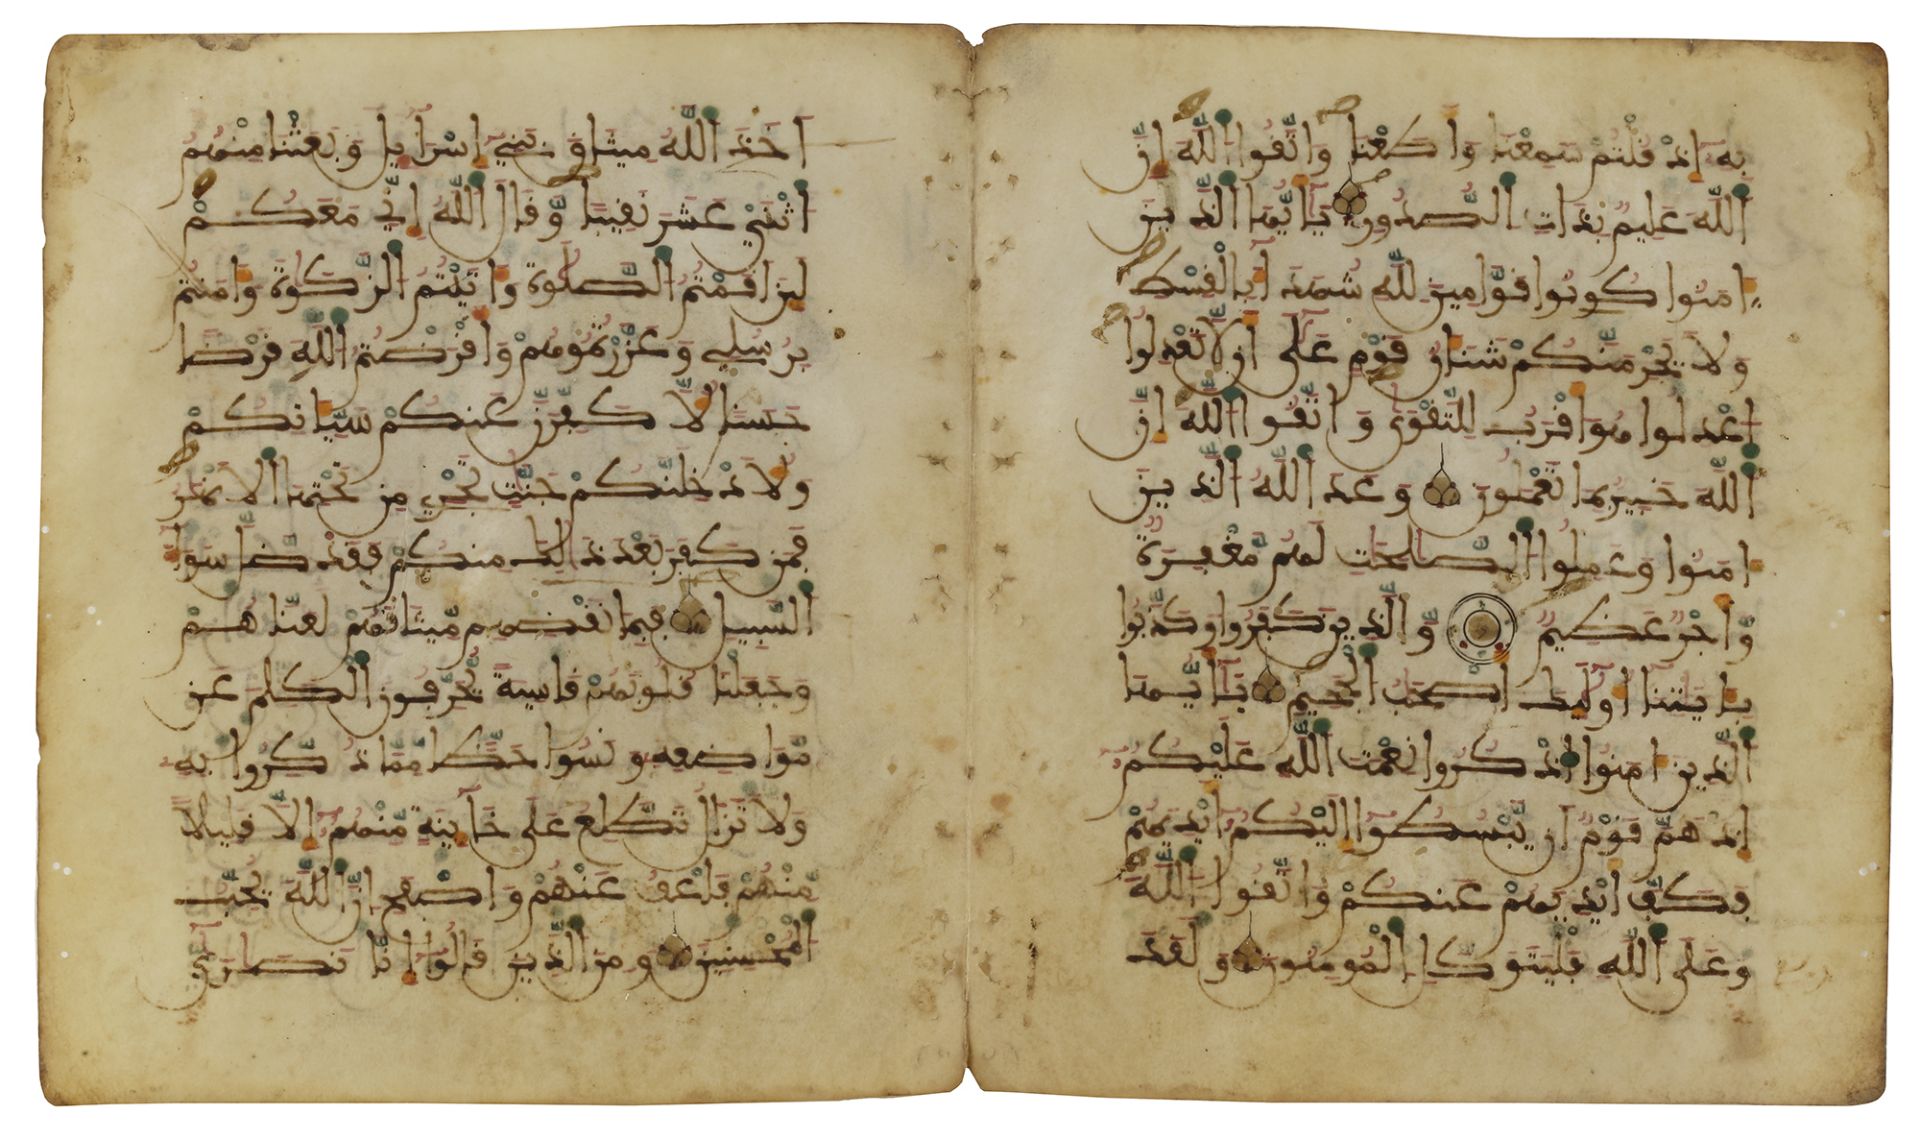 بِهِ إِذْ قُلْتُمْ سَمِعْنَا وَأَطَعْنَا وَاتَّقُوا اللَّهَ إِنَّ
اللَّهَ عَلِيمٌ بِذَاتِ الصُّدُورِ يَا أَيُّهَا الَّذِينَ
ءَامَنُوا كُونُوا قَوَّامِينَ لِلَّهِ شُهَدَآءَ بِالْقِسْطِ
وَلَا يَجْرِمَنَّكُمْ شَنَئَانُ قَوْمٍ عَلَىٰ أَن لَّا تَعْدِلُوا
اعْدِلُوا هُوَ أَقْرَبُ لِلتَّقْوَىٰ وَاتَّقُوا اللَّهَ إِنَّ
اللَّهَ خَبِيرٌ بِمَا تَعْمَلُونَ وَعَدَ اللَّهُ الَّذِينَ
ءَامَنُوا وَعَمِلُوا الصَّٰلِحَٰتِ لَهُم مَّغْفِرَةٌ
وَّأَجْرٌ عَظِيمٌ وَّالَّذِينَ كَفَرُوا وَكَذَّبُوا
بِـَٔايَٰتِنَا أُولَٰٓئِكَ أَصْحَٰبُ الْجَحِيمِ يَا أَيُّهَا
الَّذِينَ ءَامَنُوا اذْكُرُوا نِعْمَتَ اللَّهِ عَلَيْكُمُ
إِذْ هَمَّ قَوْمٌ أَن يَّبْسُطُوا إِلَيْكُمُ أَيْدِيَهُمْ
فَكَفَّ أَيْدِيَهُمْ عَنكُمْ وَاتَّقُوا اللَّهَ
وَعَلَى اللَّهِ فَلْيَتَوَكَّلِ الْمُومِنُونَ وَلَقَدَ
اَخَذَ اللَّهُ مِيثَاقَ بَنِي إِسْرَآئِيلَ وَبَعَثْنَا مِنْهُمُ
اثْنَيْ عَشَرَ نَقِيبًا وَّقَالَ اللَّهُ إِنِّي مَعَكُمْ
لَئِنَ أَقَمْتُمُ الصَّلَوٰةَ وَءَاتَيْتُمُ الزَّكَوٰةَ وَءَامَنتُم
بِرُسُلِي وَعَزَّرْتُمُوهُمْ وَأَقْرَضْتُمُ اللَّهَ قَرْضًا
حَسَنًا لَّأُكَفِّرَنَّ عَنكُمْ سَيِّـَٔاتِكُمْ
وَلَأُدْخِلَنَّكُمْ جَنَّٰتٍ تَجْرِي مِن تَحْتِهَا الْأَنْهَٰرُ
فَمَن كَفَرَ بَعْدَ ذَٰلِكَ مِنكُمْ فَقَد ضَّلَّ سَوَآءَ
السَّبِيلِ فَبِمَا نَقْضِهِم مِّيثَاقَهُمْ لَعَنَّاهُمْ
وَجَعَلْنَا قُلُوبَهُمْ قَاسِيَةً يُحَرِّفُونَ الْكَلِمَ عَن
مَّوَاضِعِهِ وَنَسُوا حَظًّا مِّمَّا ذُكِّرُوا بِهِ
وَلَا تَزَالُ تَطَّلِعُ عَلَىٰ خَآئِنَةٍ مِّنْهُمُ إِلَّا قَلِيلًا
مِّنْهُمْ فَاعْفُ عَنْهُمْ وَاصْفَحِ إِنَّ اللَّهَ يُحِبُّ
الْمُحْسِنِينَ وَمِنَ الَّذِينَ قَالُوا إِنَّا نَصَٰرَىٰ